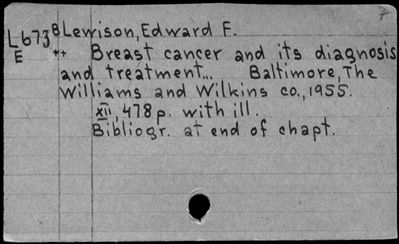 L673B Lewison, Edward F.
E ++ Breast cancer and its diagnosis
and treatment... Baltimore, The
Williams and Wilkins co., 1955.
xii, 478 p. with ill.
Bibliogr. at end of chapt.